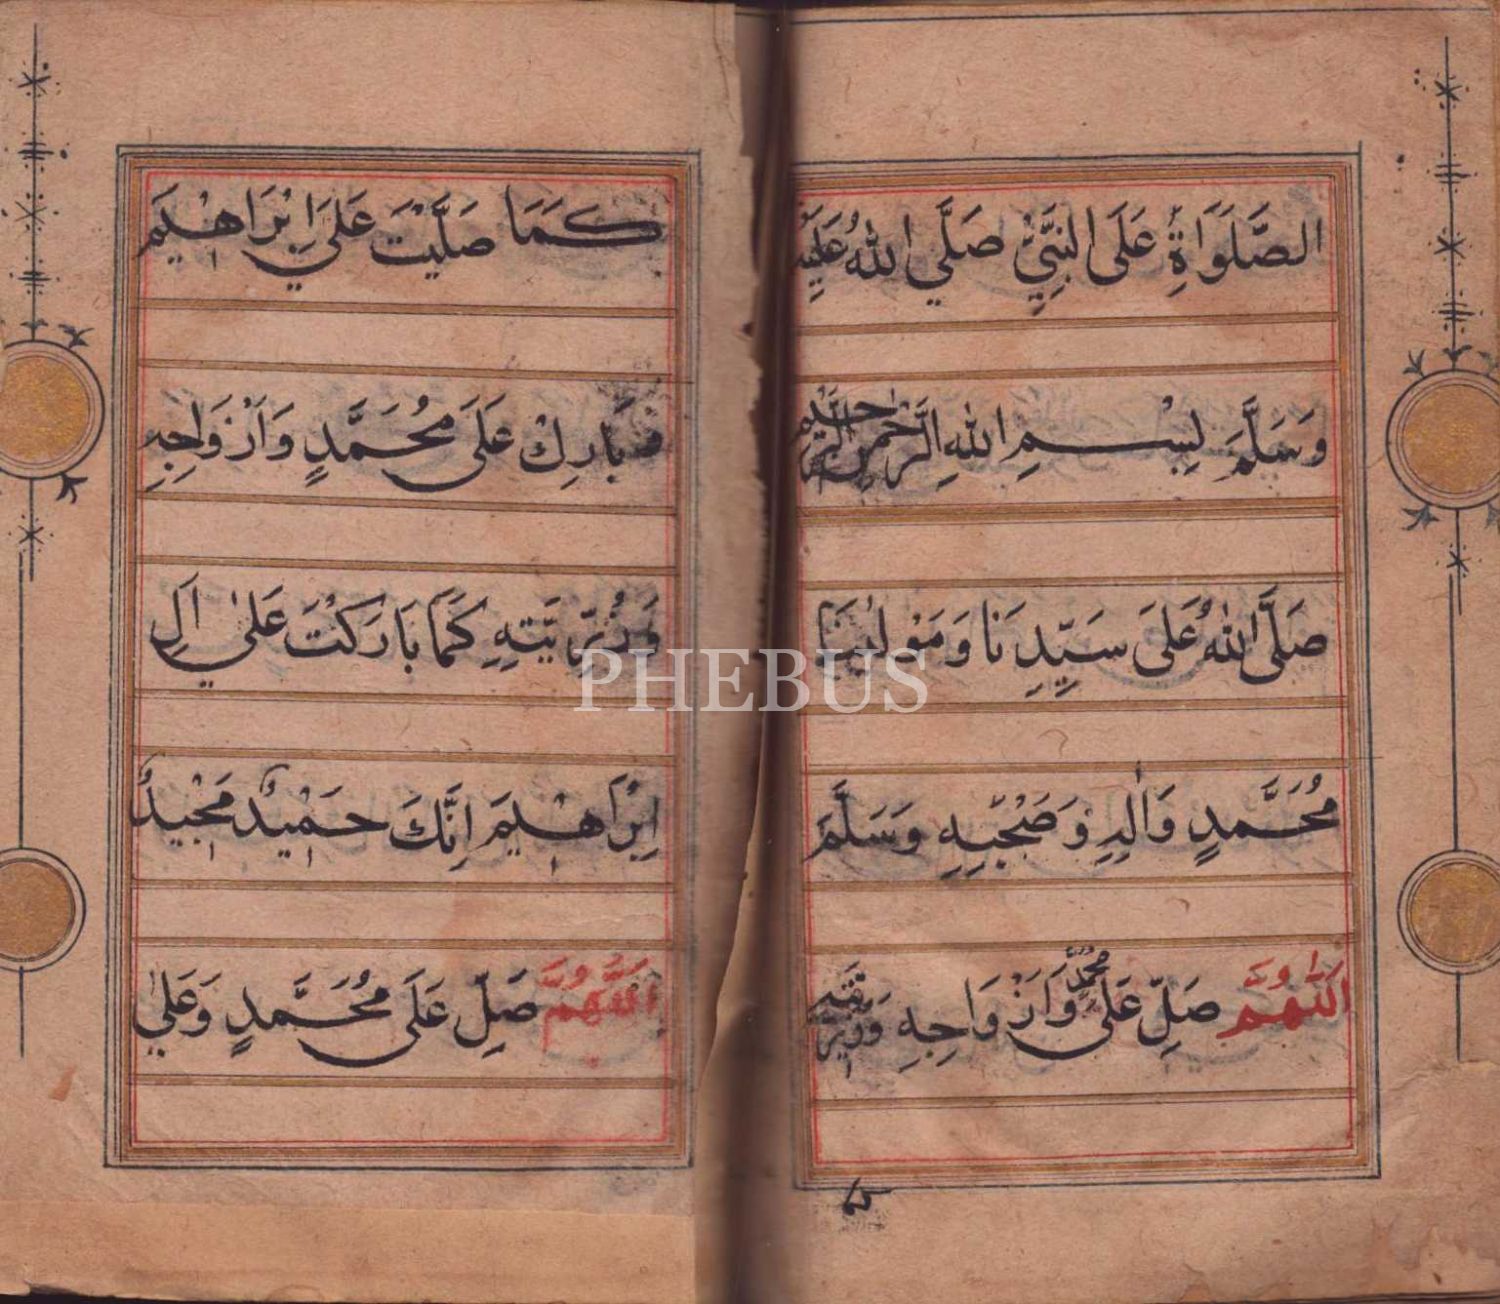 الصَّلَوَاةُ عَلَى النَّبِيِّ صَلَّي اللهُ عَلَيْهِ
وَسَلَّمَ بِسْمِ اللهِ الرَّحْمٰنِ الرَّحِيمِ
صَلَّى اللهُ عَلَى سَيِّدِنَا وَمَوْلٰينَا
مُحَمَّدٍ وَاٰلِهِ وَصَحْبِهِ وَسَلَّمَ
اَللّٰهُمَّ صَلِّ عَلَى مُحَمَّدٍ وَاَزْوَاجِهِ وَذُرِّيَّتِهِ
كَمَا صَلَّيْتَ عَلَى اِبْرَاهِيمَ
وَبَارِكْ عَلَى مُحَمَّدٍ وَاَزْوَاجِهِ
وَذُرِّيَّتِهِ كَمَا بَارَكْتَ عَلٰي اَلِ
اِبْرَاهِيمَ اِنَّكَ حَمِيدٌ مَجِيدٌ
اَللّٰهُمَّ صَلِّ عَلَى مُحَمَّدٍ وَعَلٰي
PHEBUS